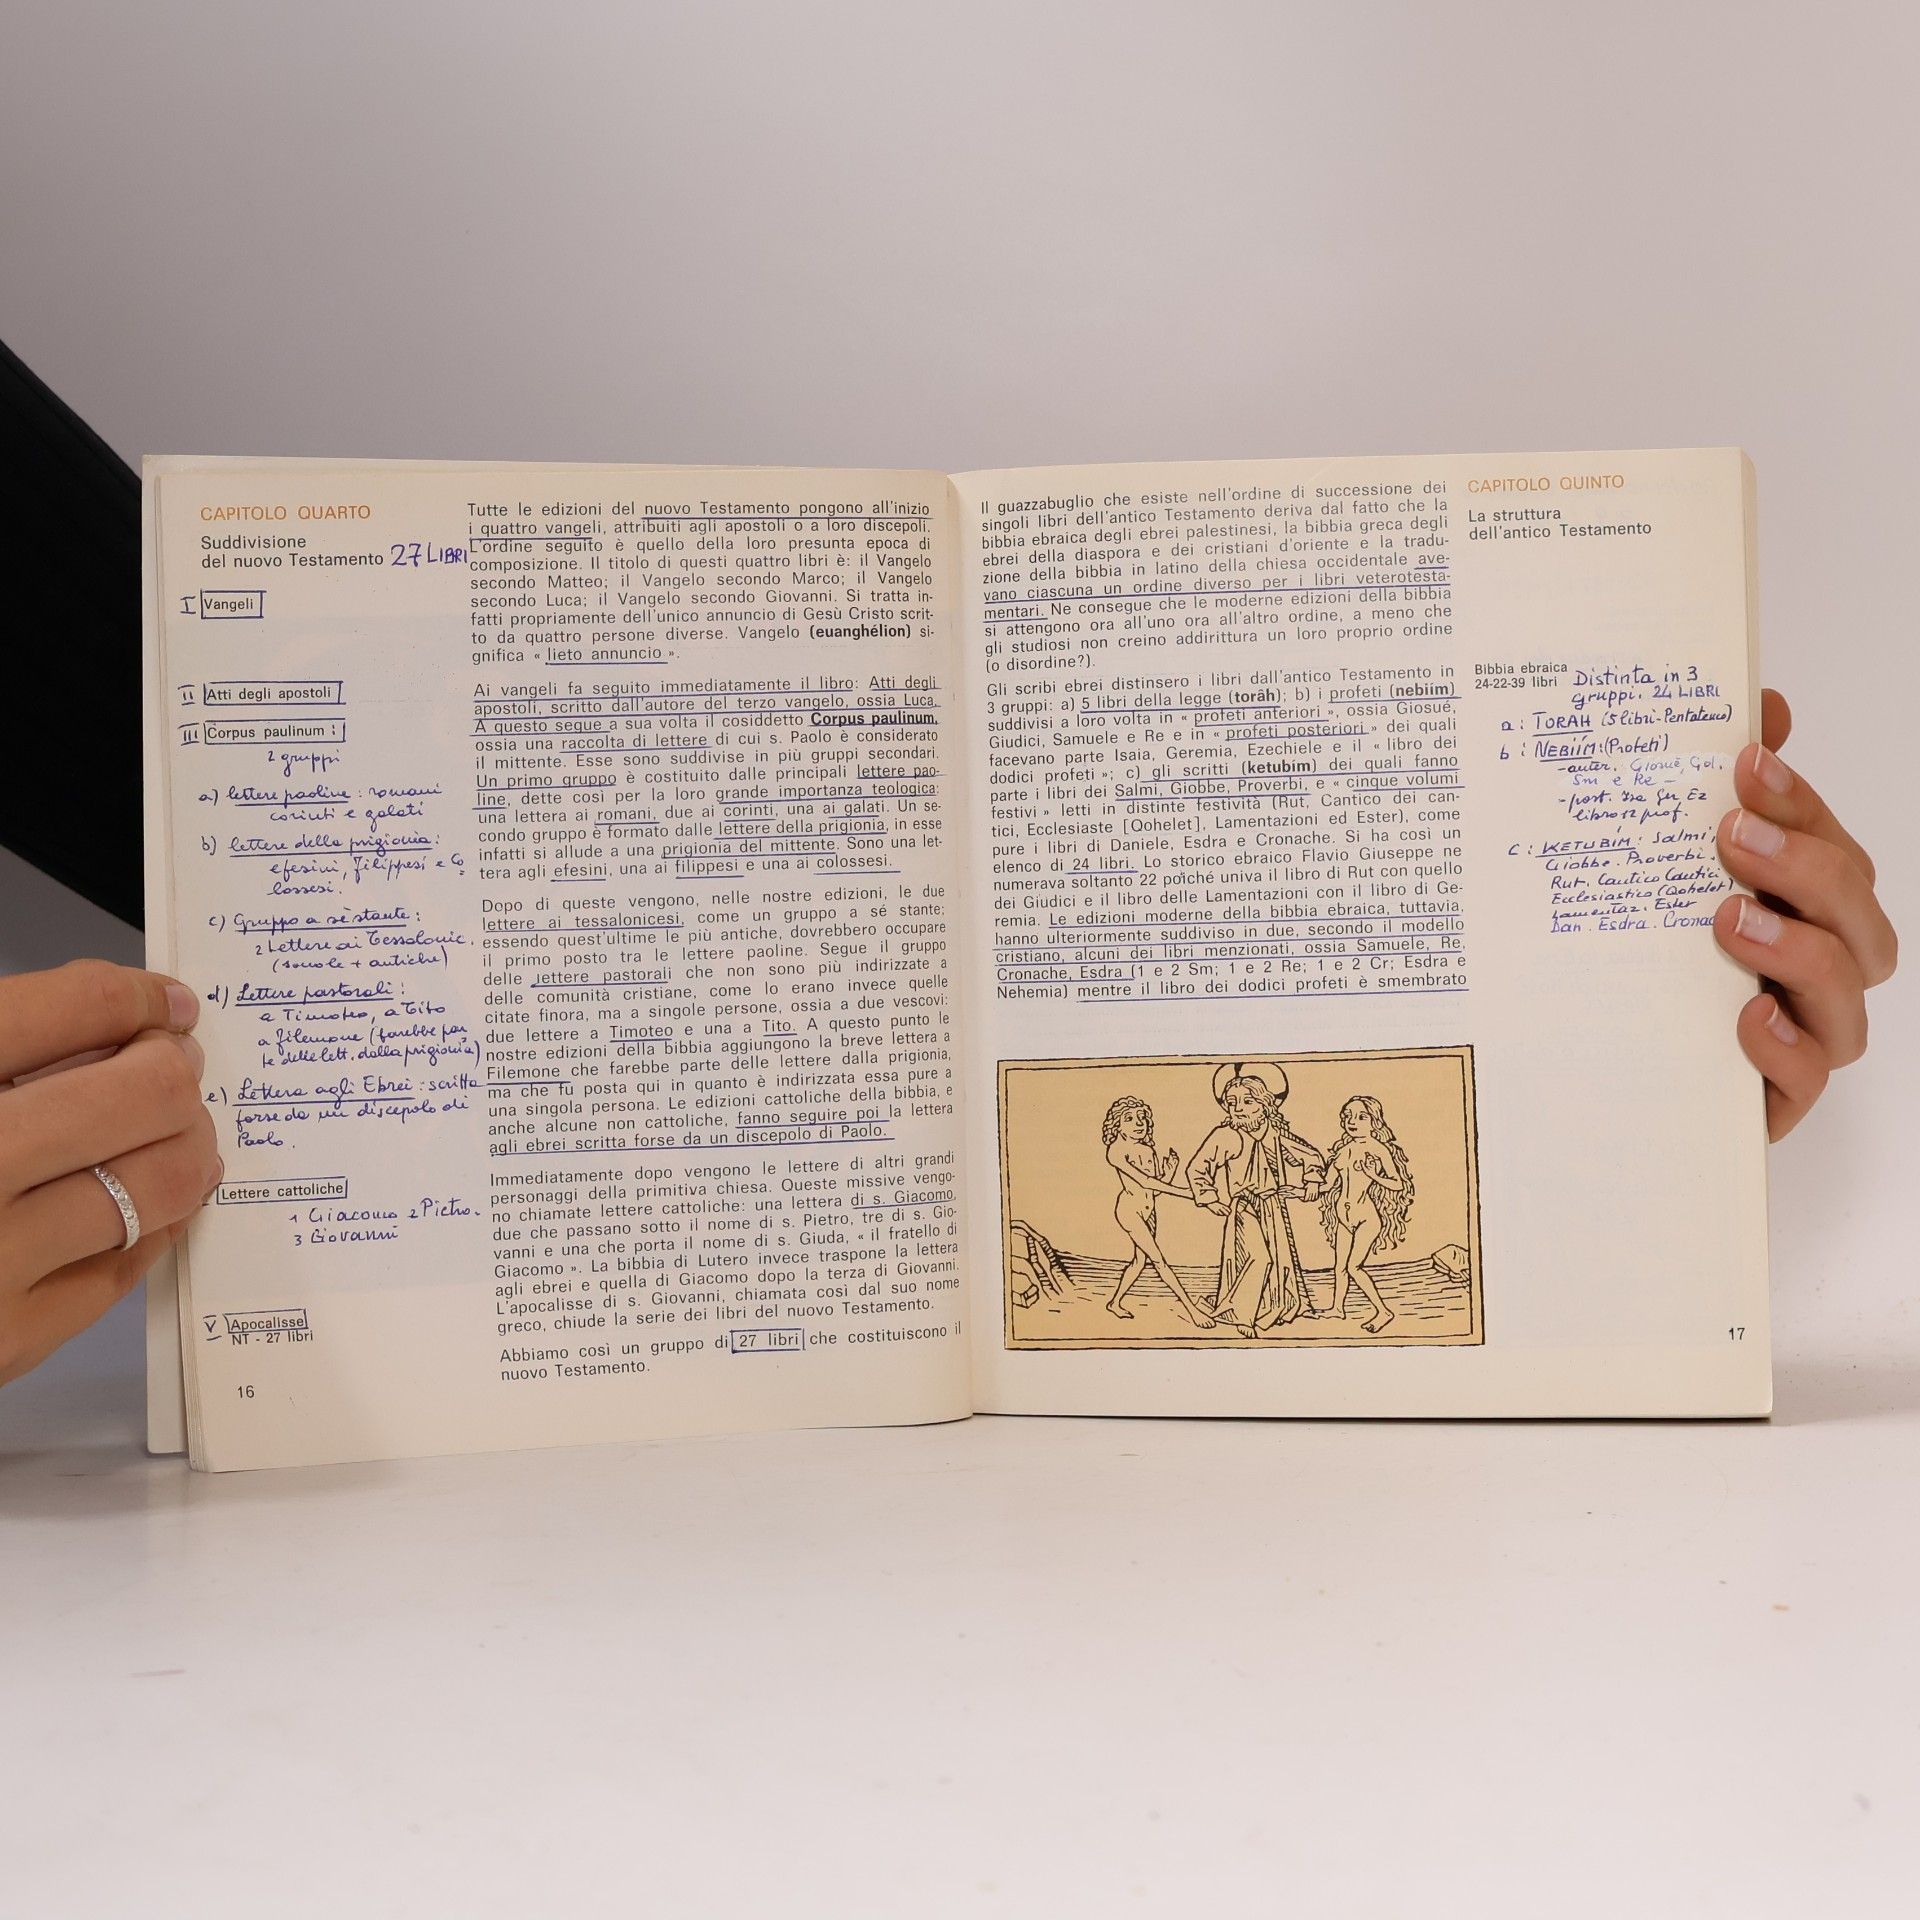 CAPITOLO QUARTO
Suddivisione
del nuovo Testamento 27 LIBRI
I Vangeli
II Atti degli apostoli
III Corpus paulinum :
2 gruppi
a) lettere paoline : romani
corinti e galati
b) lettere della prigionia :
efesini, filippesi e Co
lossesi.
c) Gruppo a sè stante :
2 Lettere ai Tessalonic.
(sono le + antiche)
d) Lettere pastorali :
a Timoteo, a Tito
a filemone (farebbe par
te delle lett. dalla prigionia)
e) Lettera agli Ebrei : scritta
forse da un discepolo di
Paolo.
Lettere cattoliche
1 Giacomo 2 Pietro.
3 Giovanni
V Apocalisse
NT - 27 libri
16
Tutte le edizioni del nuovo Testamento pongono all'inizio
i quattro vangeli, attribuiti agli apostoli o a loro discepoli.
L'ordine seguito è quello della loro presunta epoca di
composizione. Il titolo di questi quattro libri è: il Vangelo
secondo Matteo; il Vangelo secondo Marco; il Vangelo
secondo Luca; il Vangelo secondo Giovanni. Si tratta in-
fatti propriamente dell'unico annuncio di Gesù Cristo scrit-
to da quattro persone diverse. Vangelo (euanghélion) si-
gnifica « lieto annuncio ».
Ai vangeli fa seguito immediatamente il libro: Atti degli
apostoli, scritto dall'autore del terzo vangelo, ossia Luca.
A questo segue a sua volta il cosiddetto Corpus paulinum,
ossia una raccolta di lettere di cui s. Paolo è considerato
il mittente. Esse sono suddivise in più gruppi secondari.
Un primo gruppo è costituito dalle principali lettere pao-
line, dette così per la loro grande importanza teologica:
una lettera ai romani, due ai corinti, una ai galati. Un se-
condo gruppo è formato dalle lettere della prigionia, in esse
infatti si allude a una prigionia del mittente. Sono una let-
tera agli efesini, una ai filippesi e una ai colossesi.
Dopo di queste vengono, nelle nostre edizioni, le due
lettere ai tessalonicesi, come un gruppo a sé stante;
essendo quest'ultime le più antiche, dovrebbero occupare
il primo posto tra le lettere paoline. Segue il gruppo
delle lettere pastorali che non sono più indirizzate a
delle comunità cristiane, come lo erano invece quelle
citate finora, ma a singole persone, ossia a due vescovi:
due lettere a Timoteo e una a Tito. A questo punto le
nostre edizioni della bibbia aggiungono la breve lettera a
Filemone che farebbe parte delle lettere dalla prigionia,
ma che fu posta qui in quanto è indirizzata essa pure a
una singola persona. Le edizioni cattoliche della bibbia, e
anche alcune non cattoliche, fanno seguire poi la lettera
agli ebrei scritta forse da un discepolo di Paolo.
Immediatamente dopo vengono le lettere di altri grandi
personaggi della primitiva chiesa. Queste missive vengo-
no chiamate lettere cattoliche: una lettera di s. Giacomo,
due che passano sotto il nome di s. Pietro, tre di s. Gio-
vanni e una che porta il nome di s. Giuda, « il fratello di
Giacomo ». La bibbia di Lutero invece traspone la lettera
agli ebrei e quella di Giacomo dopo la terza di Giovanni.
L'apocalisse di s. Giovanni, chiamata così dal suo nome
greco, chiude la serie dei libri del nuovo Testamento.
Abbiamo così un gruppo di 27 libri che costituiscono il
nuovo Testamento.
Il guazzabuglio che esiste nell'ordine di successione dei
singoli libri dell'antico Testamento deriva dal fatto che la
bibbia ebraica degli ebrei palestinesi, la bibbia greca degli
ebrei della diaspora e dei cristiani d'oriente e la tradu-
zione della bibbia in latino della chiesa occidentale ave-
vano ciascuna un ordine diverso per i libri veterotesta-
mentari. Ne consegue che le moderne edizioni della bibbia
si attengono ora all'uno ora all'altro ordine, a meno che
gli studiosi non creino addirittura un loro proprio ordine
(o disordine?).
Gli scribi ebrei distinsero i libri dall'antico Testamento in
3 gruppi: a) 5 libri della legge (torâh); b) i profeti (nebiím)
suddivisi a loro volta in « profeti anteriori », ossia Giosué,
Giudici, Samuele e Re e in « profeti posteriori » dei quali
facevano parte Isaia, Geremia, Ezechiele e il « libro dei
dodici profeti »; c) gli scritti (ketubím) dei quali fanno
parte i libri dei Salmi, Giobbe, Proverbi, e « cinque volumi
festivi » letti in distinte festività (Rut, Cantico dei can-
tici, Ecclesiaste [Qohelet], Lamentazioni ed Ester), come
pure i libri di Daniele, Esdra e Cronache. Si ha così un
elenco di 24 libri. Lo storico ebraico Flavio Giuseppe ne
numerava soltanto 22 poiché univa il libro di Rut con quello
dei Giudici e il libro delle Lamentazioni con il libro di Ge-
remia. Le edizioni moderne della bibbia ebraica, tuttavia,
hanno ulteriormente suddiviso in due, secondo il modello
cristiano, alcuni dei libri menzionati, ossia Samuele, Re,
Cronache, Esdra (1 e 2 Sm; 1 e 2 Re; 1 e 2 Cr; Esdra e
Nehemia) mentre il libro dei dodici profeti è smembrato
CAPITOLO QUINTO
La struttura
dell'antico Testamento
Bibbia ebraica
24-22-39 libri
Distinta in 3
gruppi. 24 LIBRI
a : TORAH (5 libri - Pentateuco)
b : NEBIÍM: (Profeti)
- anter. Giosuè, Gd.
Sm e Re -
- post. Isa Ger Ez
libro 12 prof.
c : KETUBÍM : Salmi,
Giobbe. Proverbi.
Rut. Cantico Cantici
Ecclesiastico (Qohelet)
Lamentaz. Ester
Dan. Esdra. Cronac
17